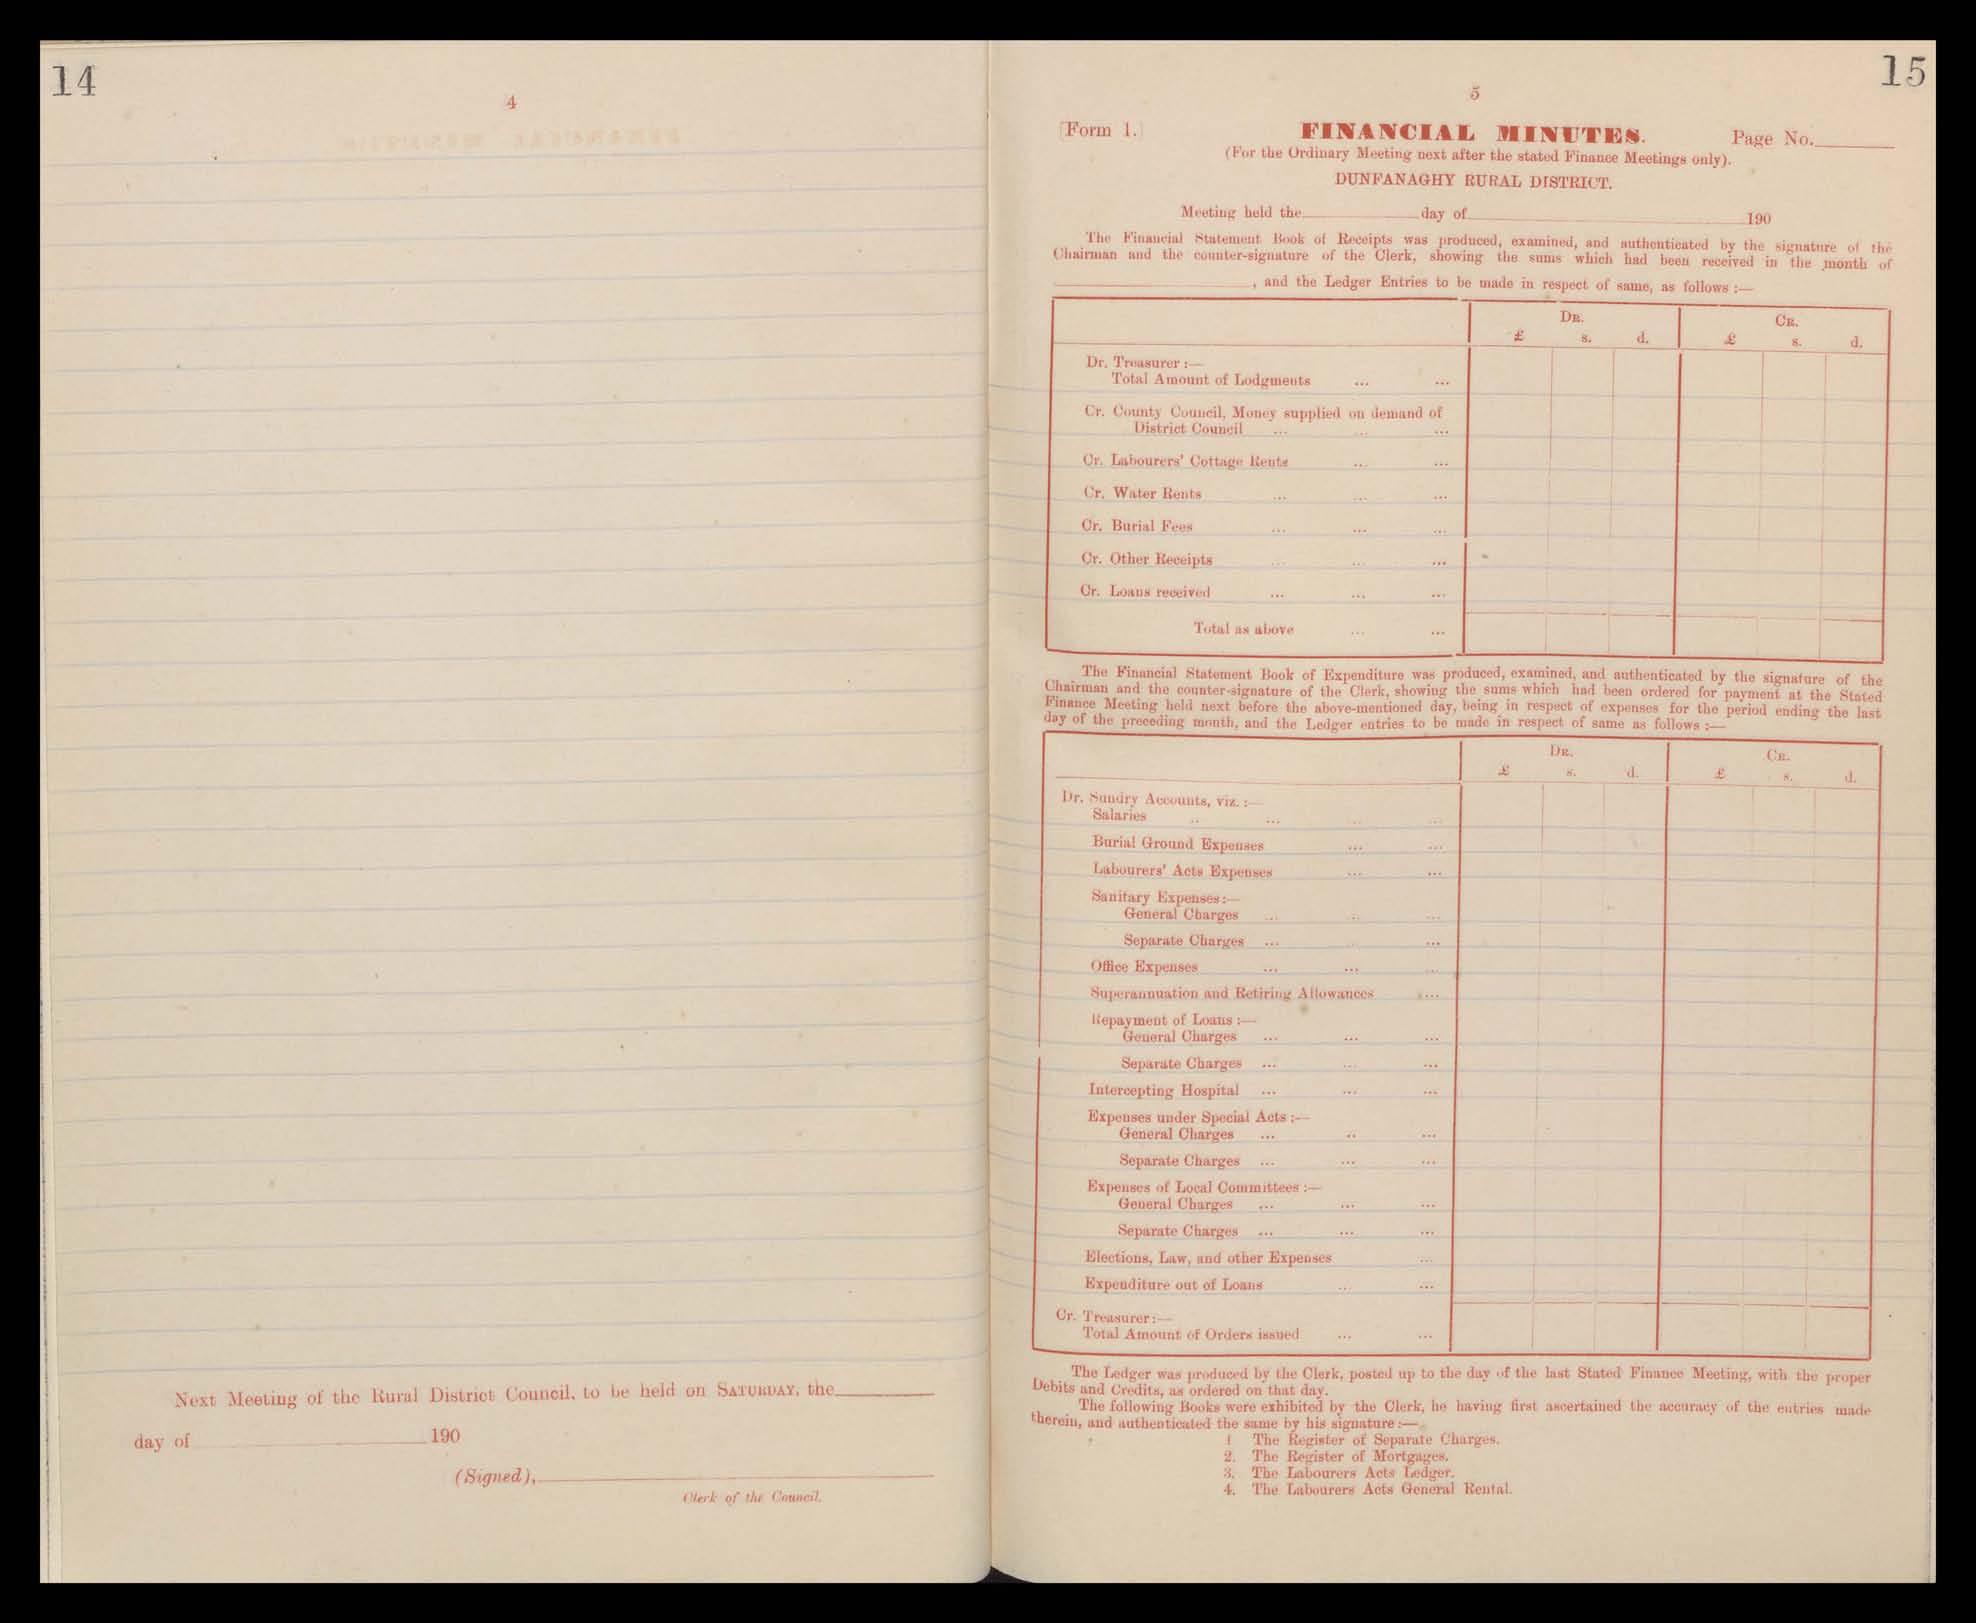 14
4
Next Meeting of the Rural District Council, to be held on SATURDAY, the
day of 190
(Signed),
Clerk of the Council.
15
5
[Form 1.]
FINANCIAL MINUTES.
Page No.
(For the Ordinary Meeting next after the stated Finance Meetings only).
DUNFANAGHY RURAL DISTRICT.
Meeting held the day of 190
The Financial Statement Book of Receipts was produced, examined, and authenticated by the signature of the
Chairman and the counter-signature of the Clerk, showing the sums which had been received in the month of
, and the Ledger Entries to be made in respect of same, as follows :—
DR. CR.
£ s. d. £ s. d.
Dr. Treasurer :—
Total Amount of Lodgments ... ...
Cr. County Council, Money supplied on demand of
District Council ... ... ...
Cr. Labourers' Cottage Rents ... ...
Cr. Water Rents ... ... ...
Cr. Burial Fees ... ... ...
Cr. Other Receipts ... ... ...
Cr. Loans received ... ... ...
Total as above ... ...
The Financial Statement Book of Expenditure was produced, examined, and authenticated by the signature of the
Chairman and the counter-signature of the Clerk, showing the sums which had been ordered for payment at the Stated
Finance Meeting held next before the above-mentioned day, being in respect of expenses for the period ending the last
day of the preceding month, and the Ledger entries to be made in respect of same as follows :—
DR. CR.
£ s. d. £ s. d.
Dr. Sundry Accounts, viz. :—
Salaries .. ... ... ...
Burial Ground Expenses ... ...
Labourers' Acts Expenses ... ...
Sanitary Expenses :—
General Charges ... ... ...
Separate Charges ... ... ...
Office Expenses ... ... ...
Superannuation and Retiring Allowances ...
Repayment of Loans :—
General Charges ... ... ...
Separate Charges ... ... ...
Intercepting Hospital ... ... ...
Expenses under Special Acts :—
General Charges ... .. ...
Separate Charges ... ... ...
Expenses of Local Committees :—
General Charges ... ... ...
Separate Charges ... ... ...
Elections, Law, and other Expenses ...
Expenditure out of Loans ... ...
Cr. Treasurer :—
Total Amount of Orders issued ... ...
The Ledger was produced by the Clerk, posted up to the day of the last Stated Finance Meeting, with the proper
Debits and Credits, as ordered on that day.
The following Books were exhibited by the Clerk, he having first ascertained the accuracy of the entries made
therein, and authenticated the same by his signature :—
1 The Register of Separate Charges.
2. The Register of Mortgages.
3. The Labourers Acts Ledger.
4. The Labourers Acts General Rental.